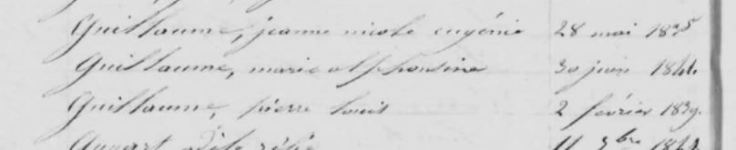 Guillaume, jeanne nicole eugénie 28 mai 1835
Guillaume, marie alphonsine 30 juin 1844
Guillaume, pierre louis 2 février 1839.
11 9bre